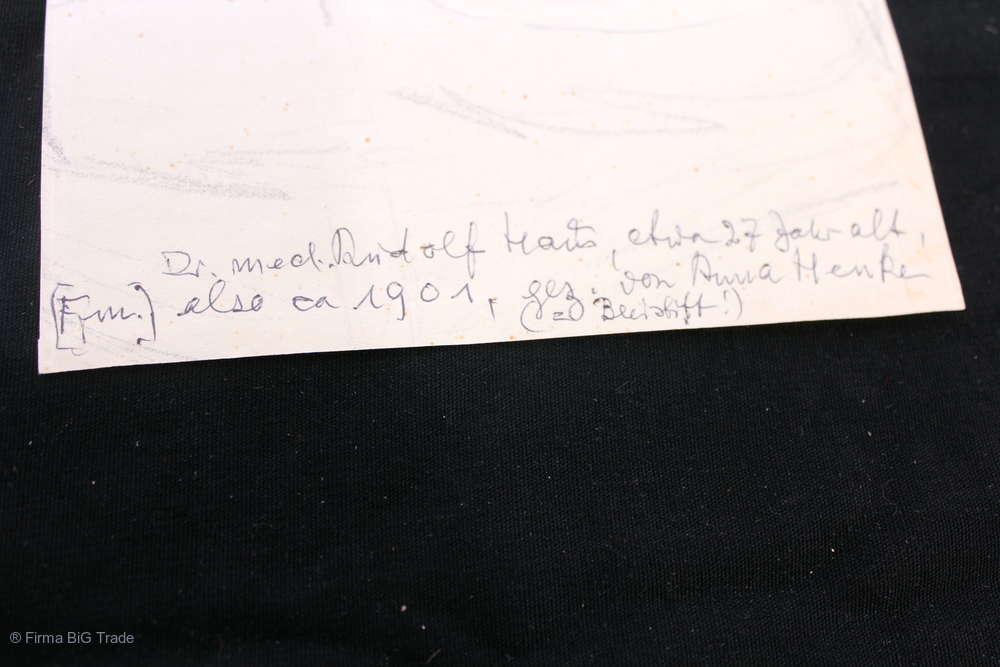 Dr. med. Rudolf Haus, etwa 27 Jahr alt,
also ca 1901, gez. von Anna Henker
(=D Bleistift!)
® Firma BiG Trade